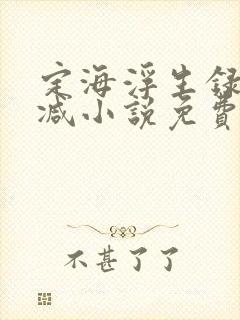 定海浮生录
减小说免费
不甚了了